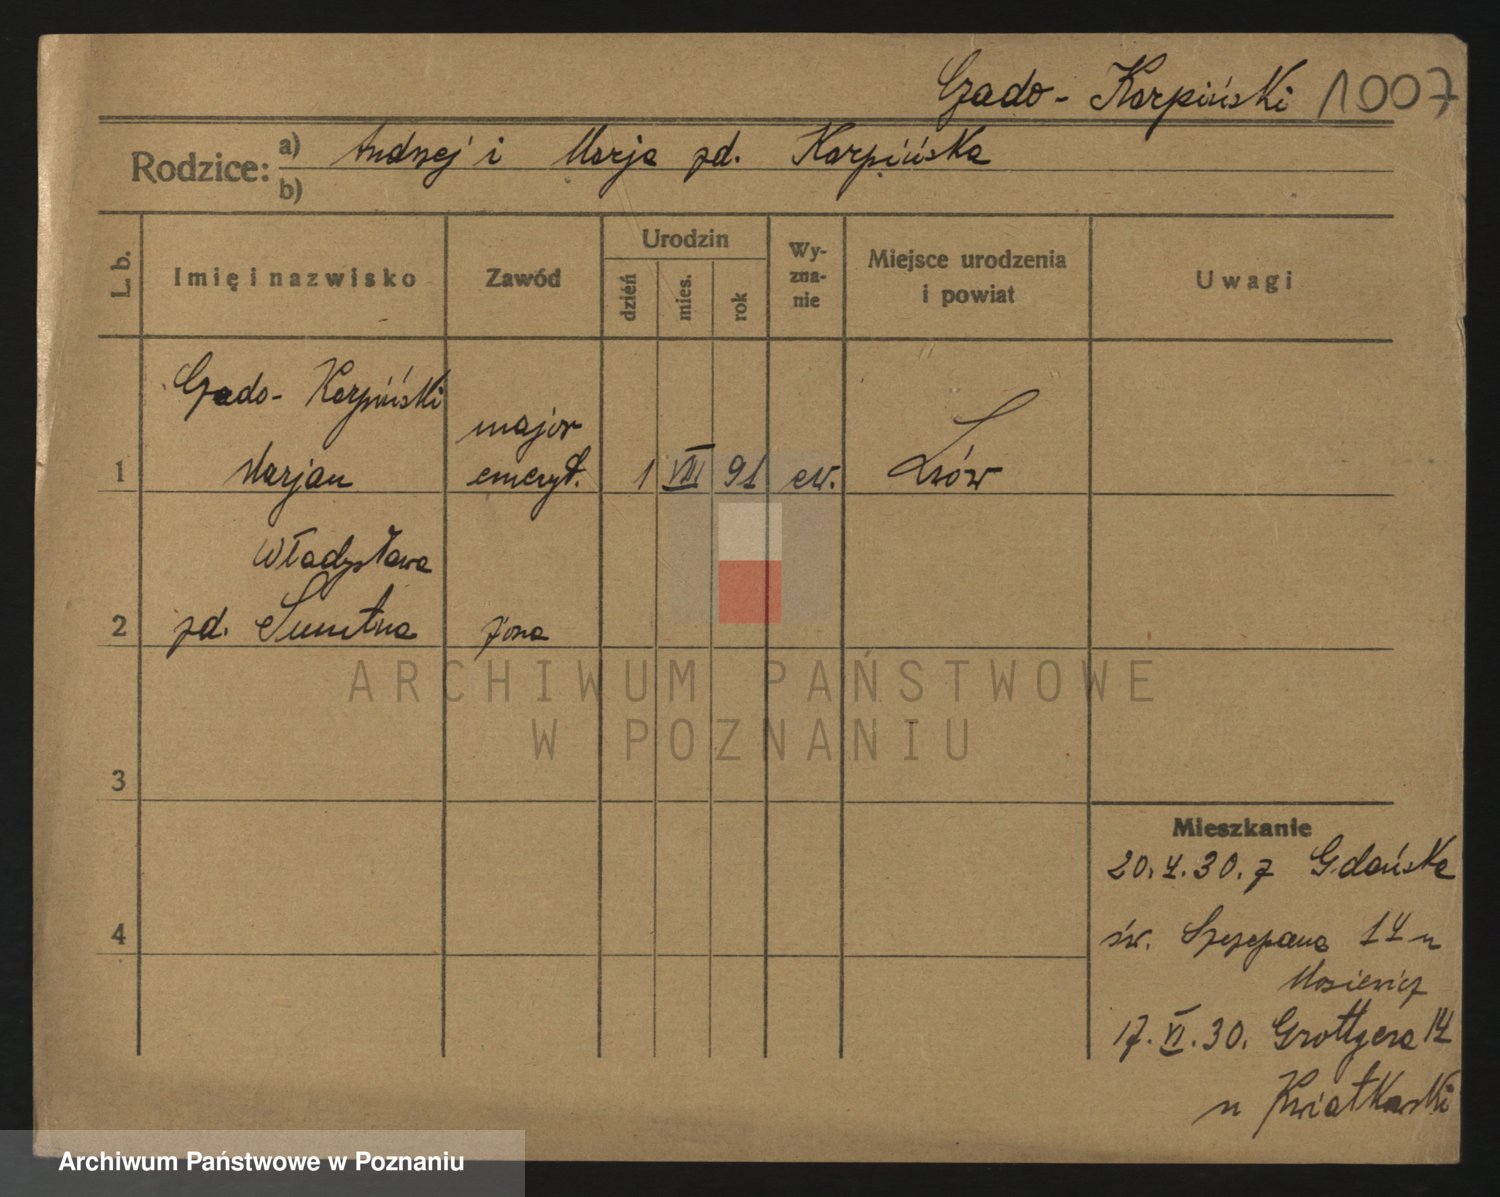 Czado-Karpiński 1007
Rodzice: a) Andrzej i Marja zd. Karpińska
b)
L. b.
Imię i nazwisko
Zawód
Urodzin
dzień
mies.
rok
Wy-
zna-
nie
Miejsce urodzenia
i powiat
Uwagi
Czado-Karpiński
major
1 Marjan emeryt. 1 VIII 91 ew. Lwów
Władysława
2 zd. żona
3
4
Mieszkanie
20. 30. z Gdańska
św. Szczepana 14 u
Mosiewicz
17. VI. 30. Grottgera 14
u Kwiatkowski
ARCHIWUM PAŃSTWOWE
W POZNANIU
Archiwum Państwowe w Poznaniu